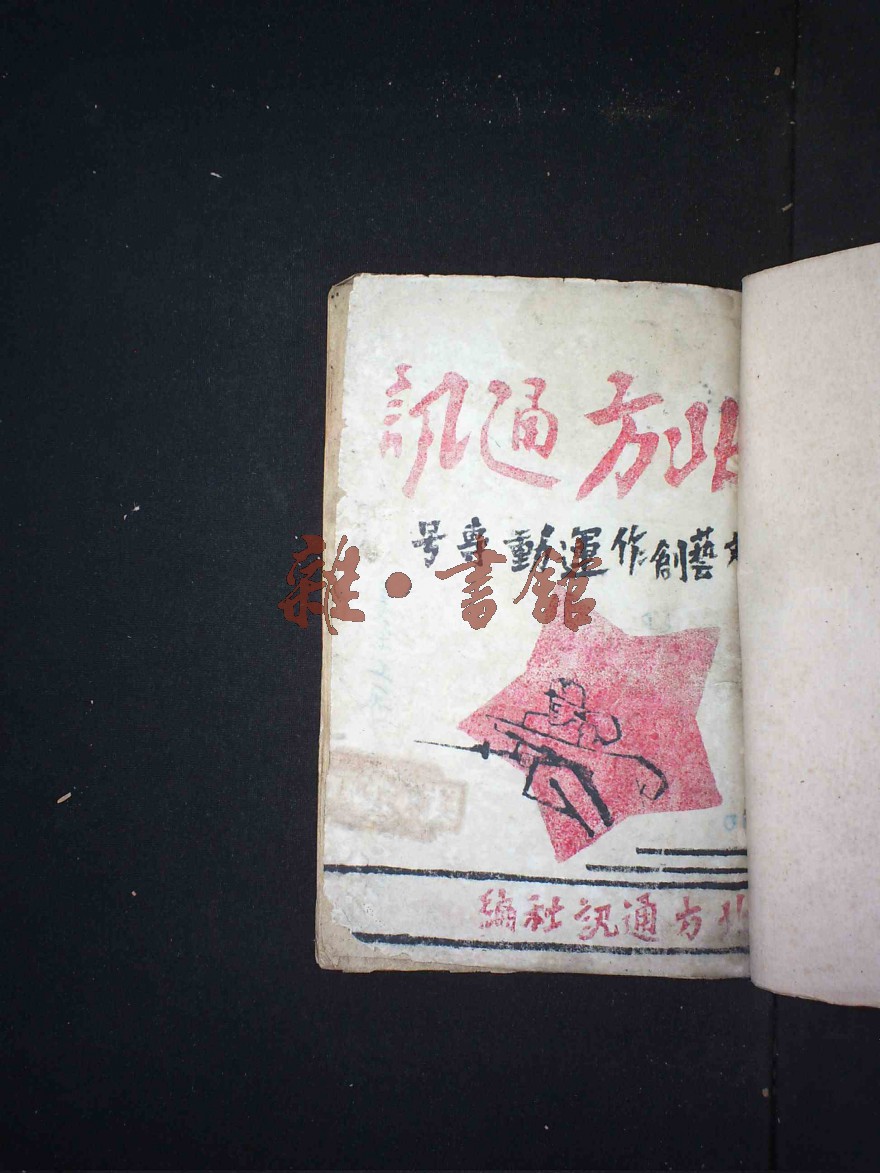 北方通訊
文藝創作運動專號
雜·書館
北方通訊社編